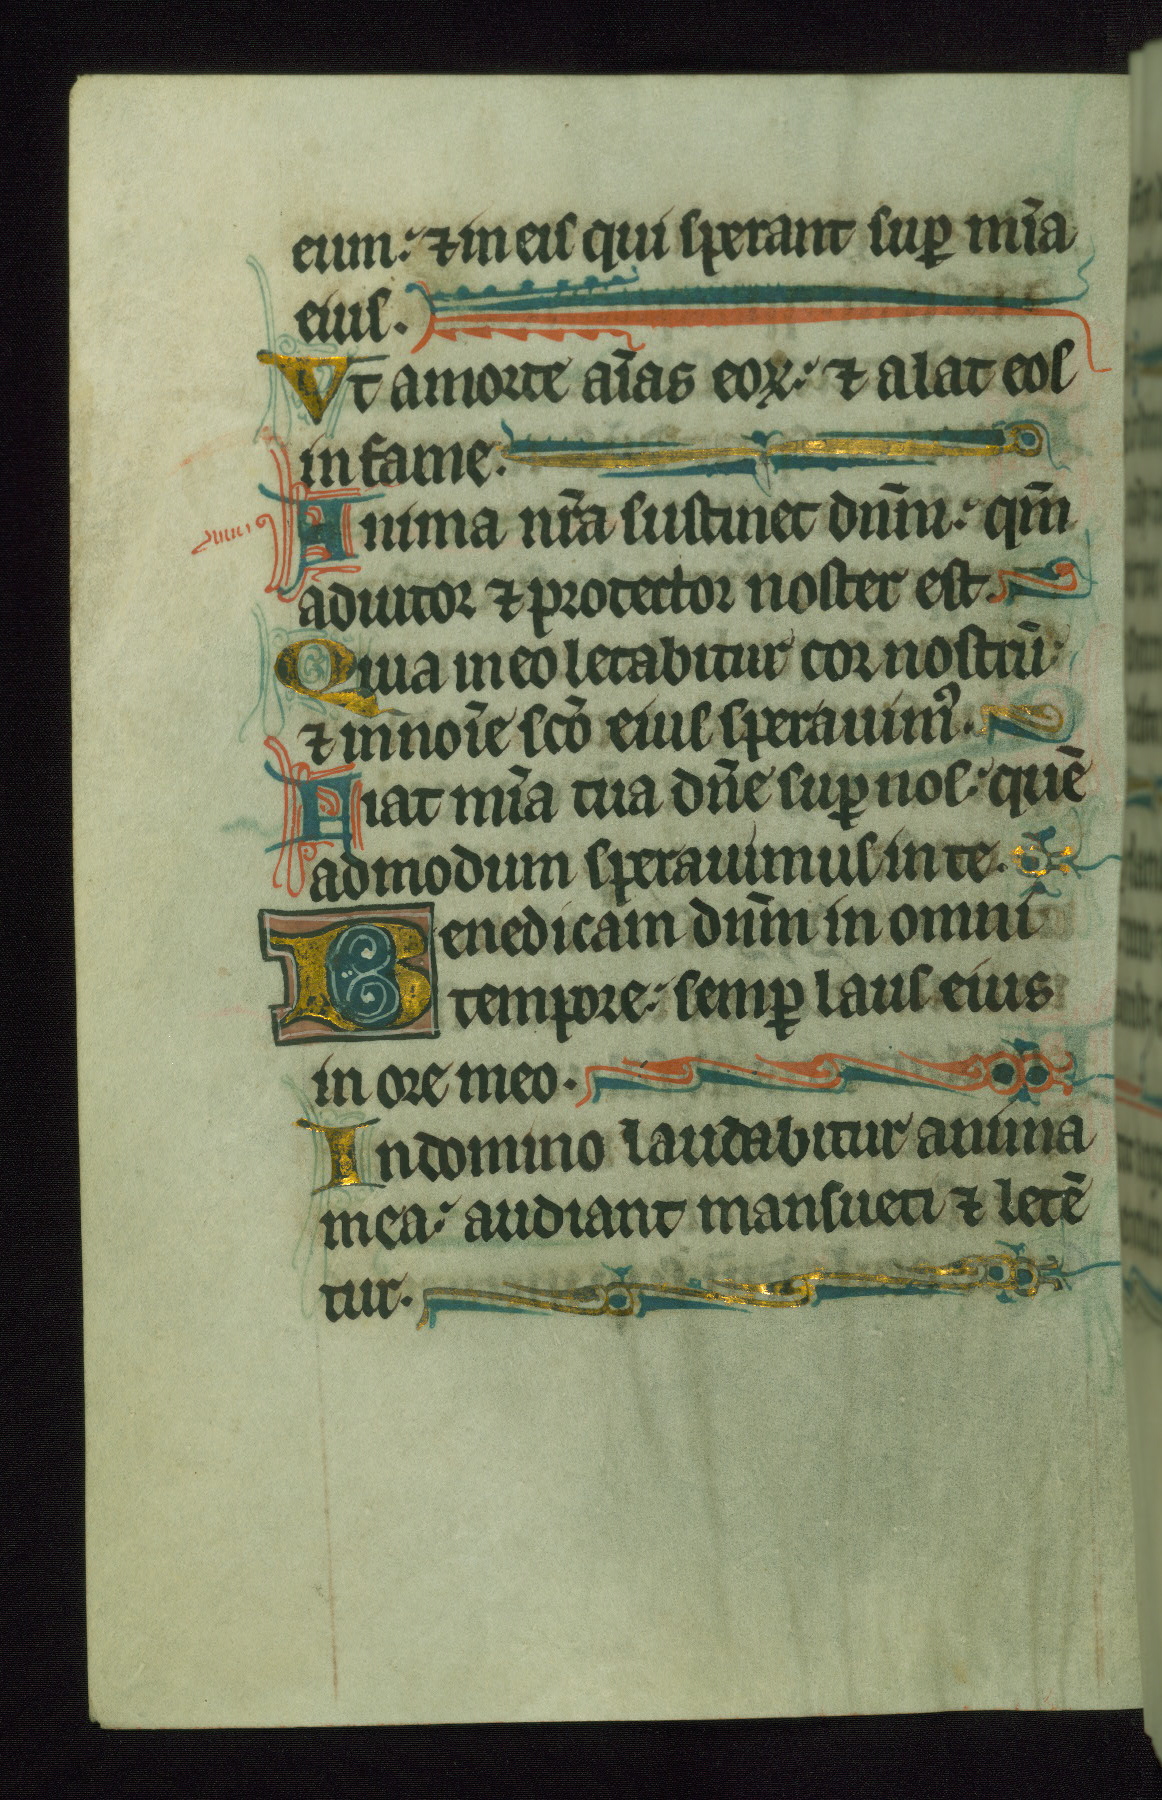 eum: ⁊ in eis qui sperant suꝑ mīa
eius.
Vt a morte aīas eoꝝ: ⁊ alat eos
in fame.
Anima nr̄a sustinet dn̄m: qm̄
adiutor ⁊ protector noster est.
Quia in eo letabitur cor nostrū:
⁊ in noīe sc̄o eius sperauimꝰ.
Fiat mīa tua dn̄e suꝑ nos: quē
admodum sperauimus in te.
Benedicam dn̄m in omni
tempore: semꝑ laus eius
in ore meo.
In domino laudabitur anima
mea: audiant mansueti ⁊ letē
tur.